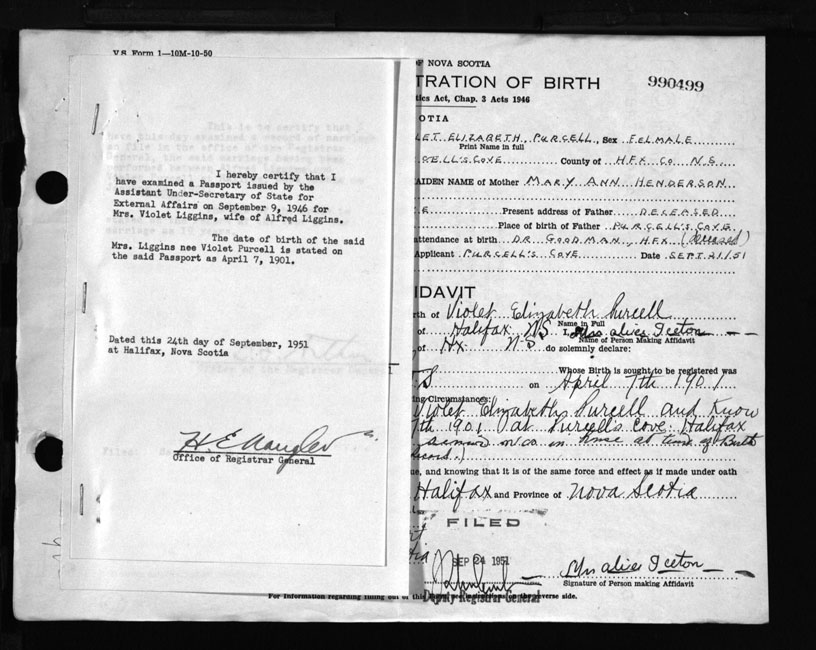 V.S. Form 1—10M-10-50
I hereby certify that I
have examined a Passport issued by the
Assistant Under-Secretary of State for
External Affairs on September 9, 1946 for
Mrs. Violet Liggins, wife of Alfred Liggins.
The date of birth of the said
Mrs. Liggins nee Violet Purcell is stated on
the said Passport as April 7, 1901.
Dated this 24th day of September, 1951
at Halifax, Nova Scotia
Office of Registrar General
OF NOVA SCOTIA
TRATION OF BIRTH 990499
tics Act, Chap. 3 Acts 1946
OTIA
LET ELIZABETH PURCELL, Sex FEMALE
Print Name in full
CELL'S COVE County of HFX CO N.S.
AIDEN NAME of Mother MARY ANN HENDERSON
E Present address of Father DECEASED
Place of birth of Father PURCELL'S COVE
attendance at birth DR GOODMAN, HFX (Deceased)
Applicant PURCELL'S COVE Date SEPT. 21/51
IDAVIT
rth of Violet Elizabeth Purcell
Name in Full
of Halifax NS I, Mrs Alice Iceton
Name of Person Making Affidavit
of Hx NS do solemnly declare:
Whose Birth is sought to be registered was
S on April 7th 1901
ing Circumstances:
Violet Elizabeth Purcell and Know
7th 1901 at Purcell's Cove Halifax
in house at time of Birth
ue, and knowing that it is of the same force and effect as if made under oath
Halifax and Province of Nova Scotia
FILED
SEP 24 1951
Mrs Alice Iceton
Signature of Person making Affidavit
Deputy Registrar General
For Information regarding filling out of this form see instructions on the reverse side.